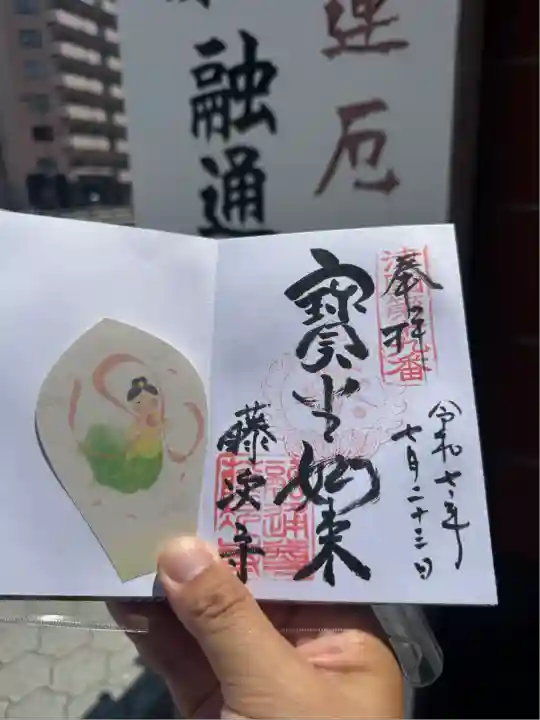 運厄
融通
奉拝
寶生如来
藤次寺
令和七年
七月二十三日